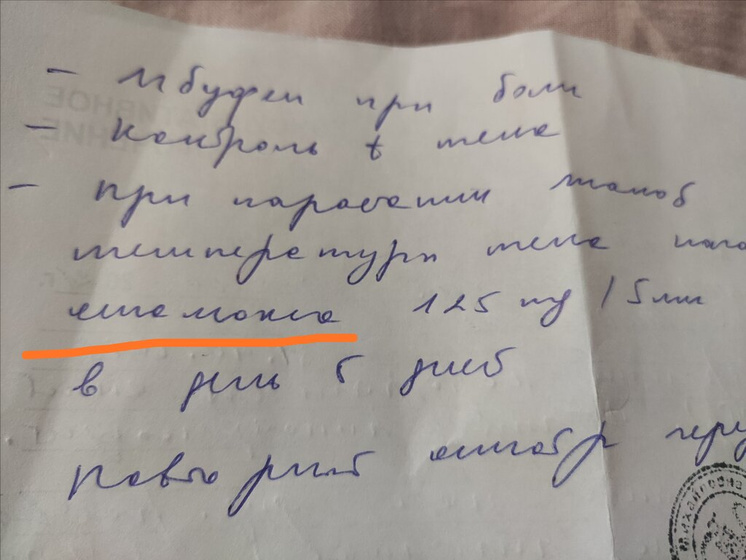 - Ибуфен при боли
- Контроль t тела
- При нарастании жалоб
температуры тела
125 мг / 5 мл
в день 5 дней
Повторный осмотр